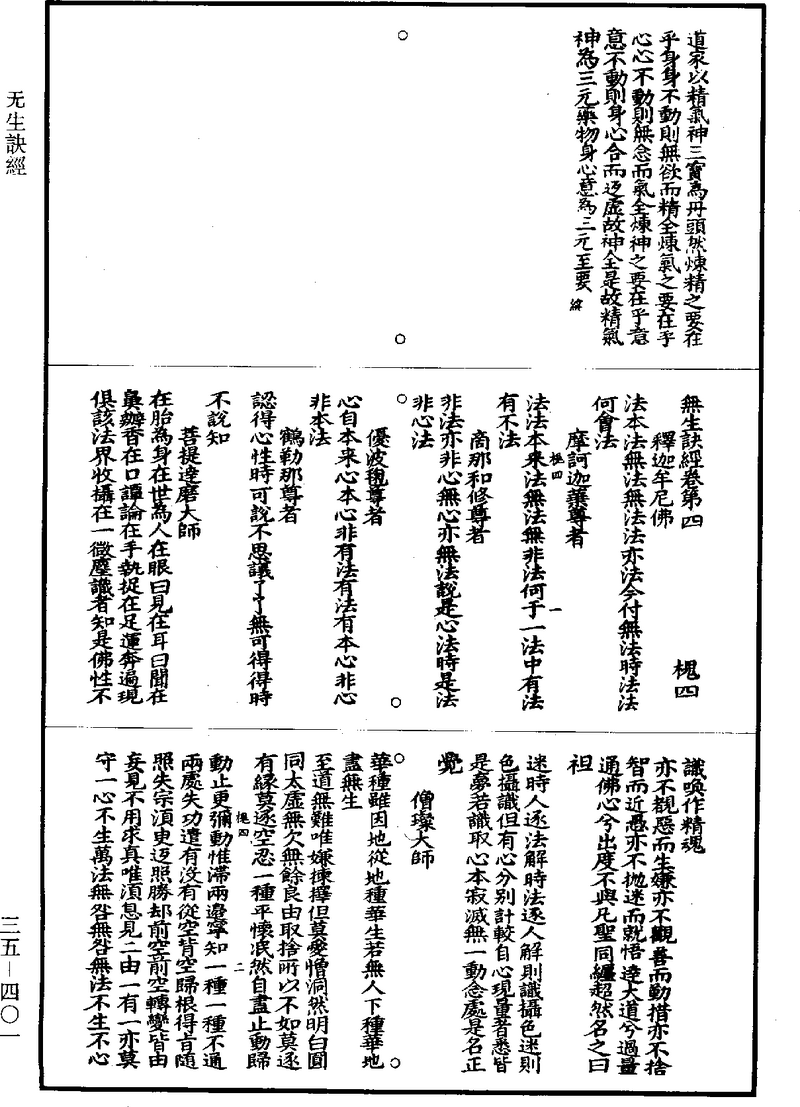 无生訣經
道家以精氣神三寶為丹頭然煉精之要在
乎身身不動則無欲而精全煉氣之要在乎
心心不動則無念而氣全煉神之要在乎意
意不動則身心合而返虛故神全是故精氣
神為三元藥物身心意為三元至要
無生訣經卷第四
槐四
釋迦牟尼佛
法本法無法無法法亦法今付無法時法法
何曾法
摩訶迦葉尊者
槐四
一
法法本來法無法無非法何于一法中有法
有不法
商那和修尊者
非法亦非心無心亦無法說是心法時是法
非心法
優波毱尊者
心自本來心本心非有法有法有本心非心
非本法
鶴勒那尊者
認得心性時可說不思議了了無可得得時
不說知
菩提達磨大師
在胎為身在世為人在眼曰見在耳曰聞在
鼻辦香在口譚論在手執捉在足運奔遍現
俱該法界收攝在一微塵識者知是佛性不
識喚作精魂
亦不覩惡而生嫌亦不觀善而勤措亦不捨
智而近愚亦不拋迷而就悟達大道兮過量
通佛心兮出度不與凡聖同纏超然名之曰
祖
迷時人逐法解時法逐人解則識攝色迷則
色攝識但有心分別計較自心現量者悉皆
是夢若識取心本寂滅無一動念處是名正
覺
僧璨大師
華種雖因地從地種華生若無人下種華地
盡無生
至道無難唯嫌揀擇但莫憎愛洞然明白圓
同太虛無欠無餘良由取捨所以不如莫逐
有緣莫逐空忍一種平懷泯然自盡止動歸
槐四
二
動止更彌動惟滯兩邊寧知一種一種不通
兩處失功遣有沒有從空背空歸根得旨隨
照失宗須臾返照勝却前空前空轉變皆由
妄見不用求真唯須息見二由一有一亦莫
守一心不生萬法無咎無咎無法不生不心
三五－四〇一